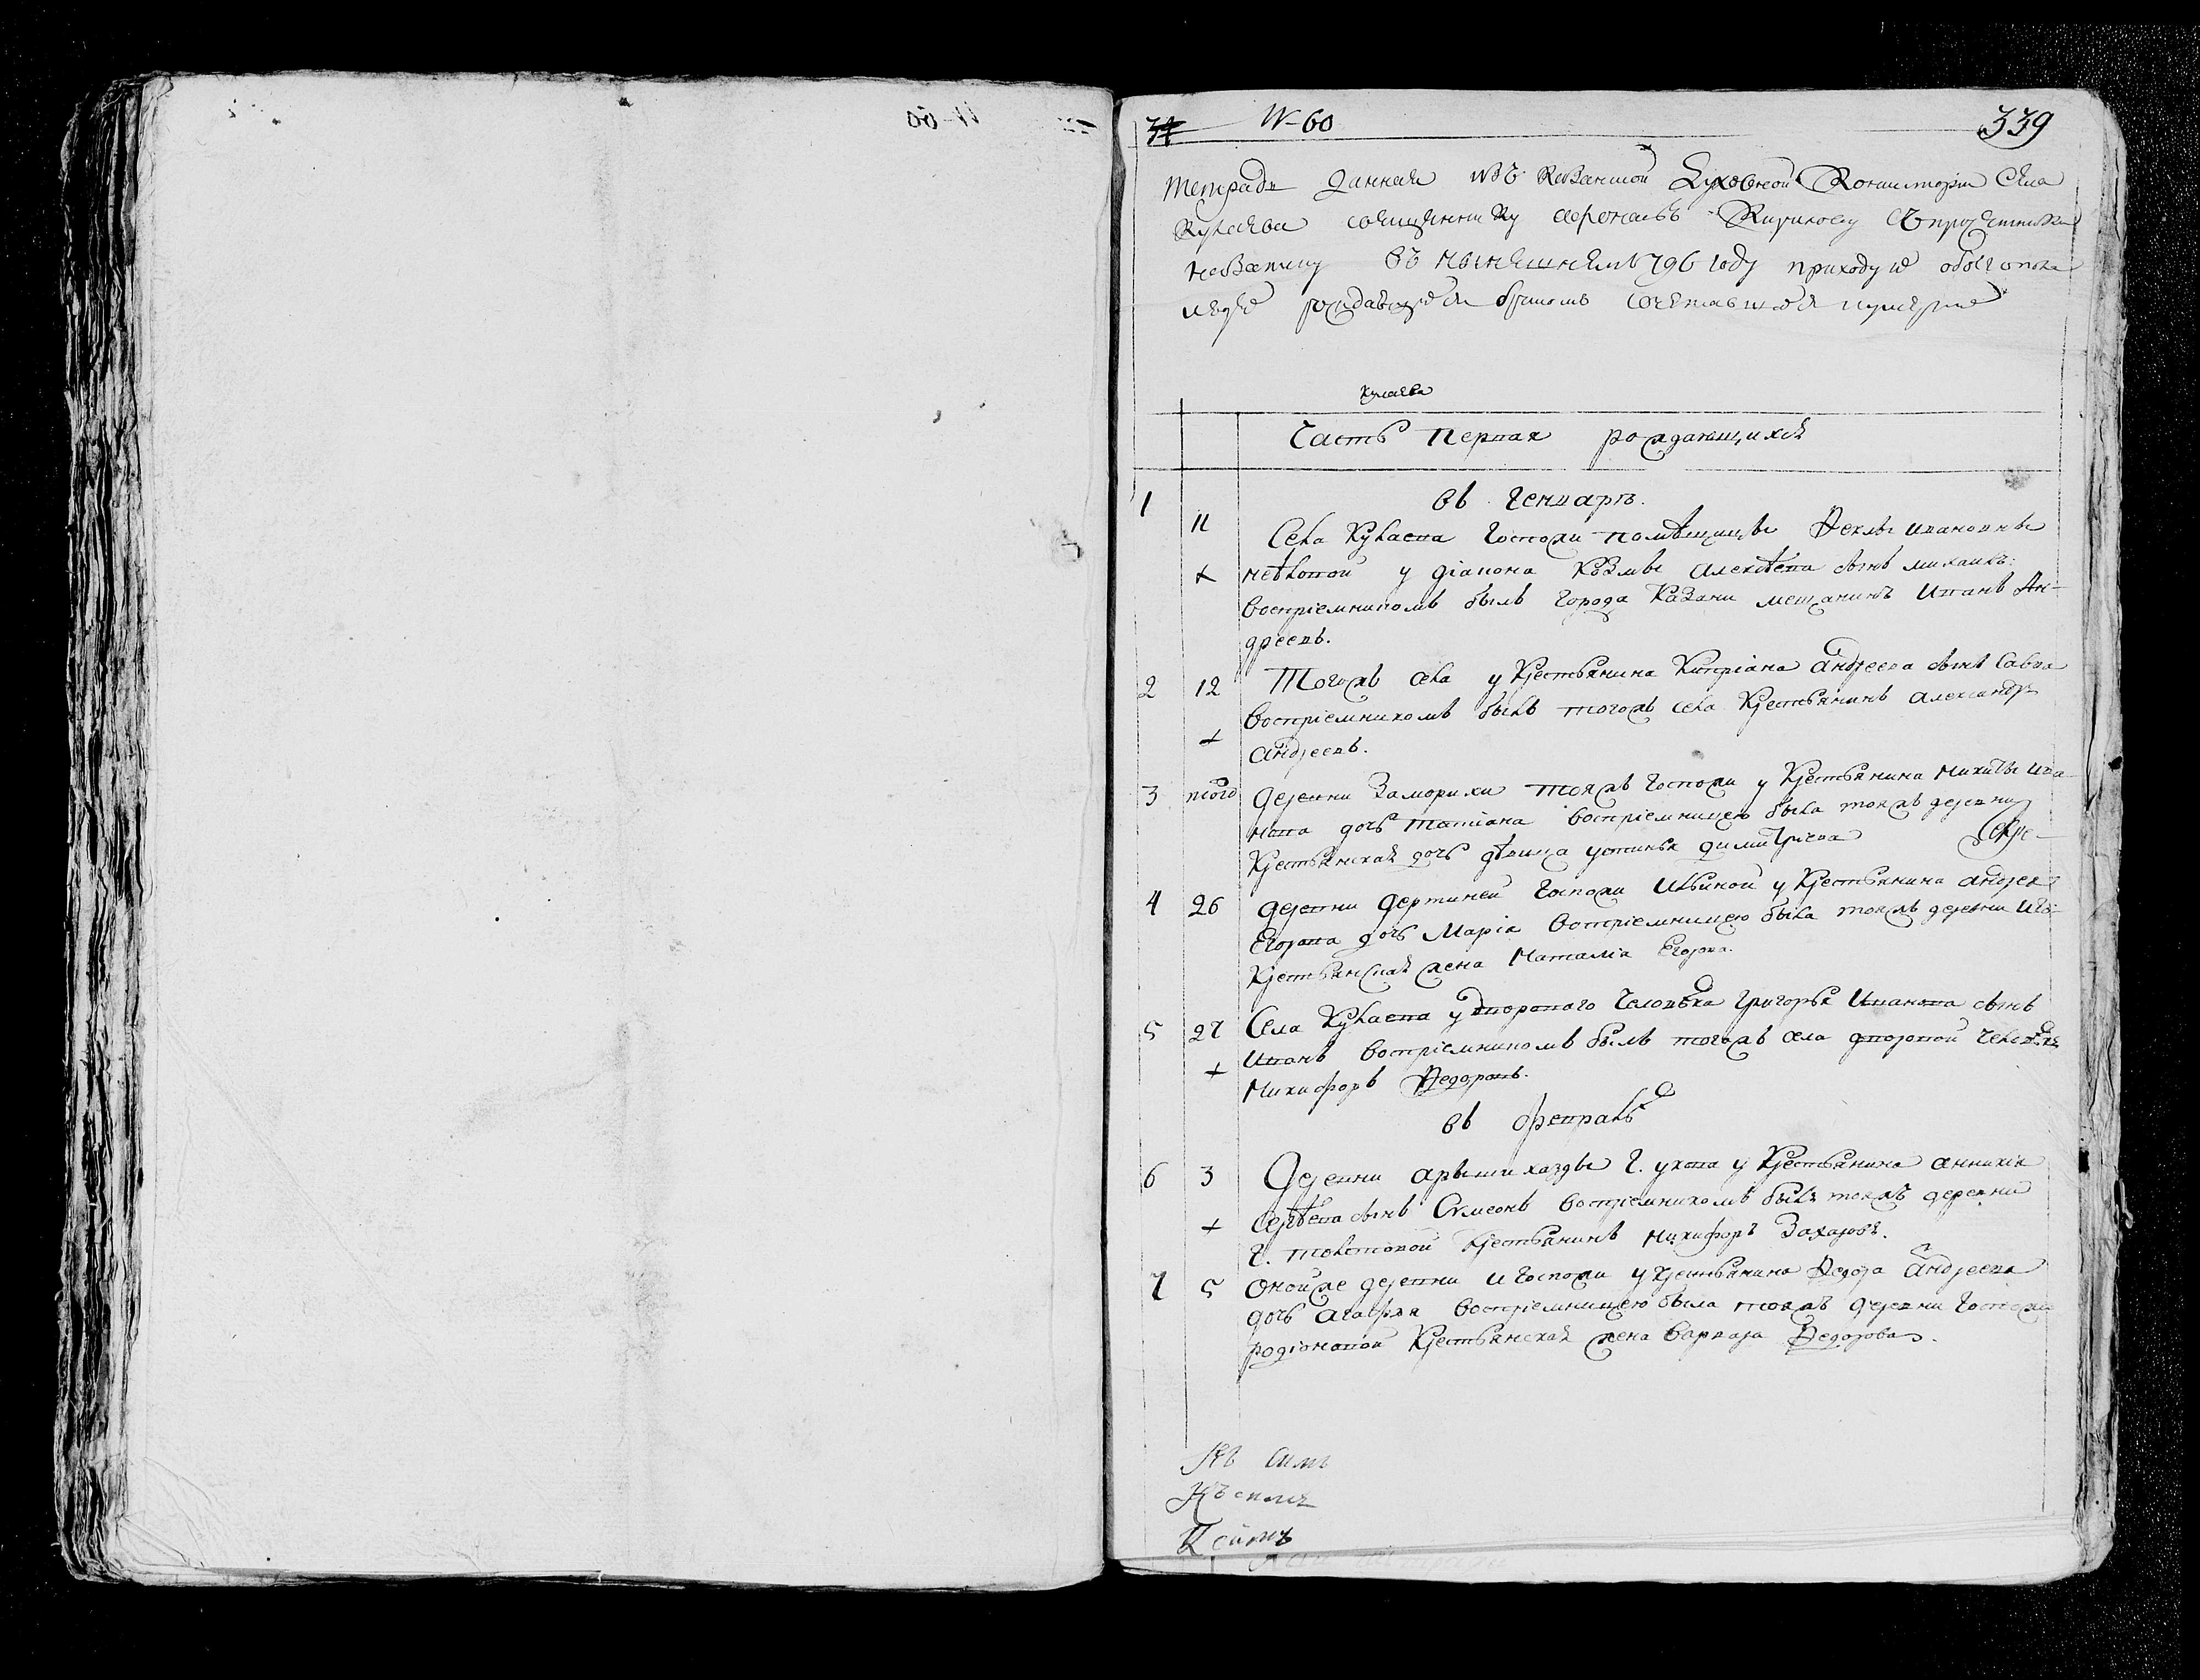 34 № 60 339
Тетрадь данная изъ казанской Духовной Консисторіи Села
Кулаева священнику Кирилову съ причетники
въ нынешнемъ 796 году приходу обоего пола
рождающихся бракомъ сочетавшихся
Кулаева
Часть первая рождающихся
въ генваръ.
1 11 Села Кулаева Госпожи помѣщицы Феклы Ивановны
+ у діакона Козмы Алексѣева сынъ Михаилъ:
Воспріемникомъ былъ города Казани мещанинъ Иванъ Ан-
дреевъ.
2 12 Тогожъ села у Крестьянина Кипріана Андреева сынъ Савва
Воспріемникомъ былъ тогожъ села Крестьянинъ Александръ
+ Андреевъ.
3 того Деревни Заморихи тояжъ Госпожи у Крестьянина Никиты Ива-
нова дочь Татіана воспріемницею была тояжъ деревни
Крестьянская дочь дѣвица Устинья Димитріева Секре-
4 26 Деревни Госпожи Ильиной у Крестьянина Андрея
Егорова дочь Марія Воспріемницею была тояжъ деревни
Крестьянская жена Наталія Егорова.
5 27 Села Кулаева у двороваго Человѣка Григорья Иванова сынъ
+ Иванъ Воспріемникомъ былъ тогожъ села дворовой человѣкъ
Никифоръ Федоровъ.
въ февралѣ
6 3 Деревни г. у Крестьянина
+ сынъ Симеонъ Воспріемникомъ былъ тояжъ деревни
г. Толстовой Крестьянинъ Никифоръ Захаровъ.
7 5 Онойже деревни и Госпожи у Крестьянина Федора Андреева
дочь Агафья Воспріемницею была тояжъ деревни Госпожи
Родіоновой Крестьянская жена Варвара Федорова.
Къ симъ
Къ симъ
К симъ